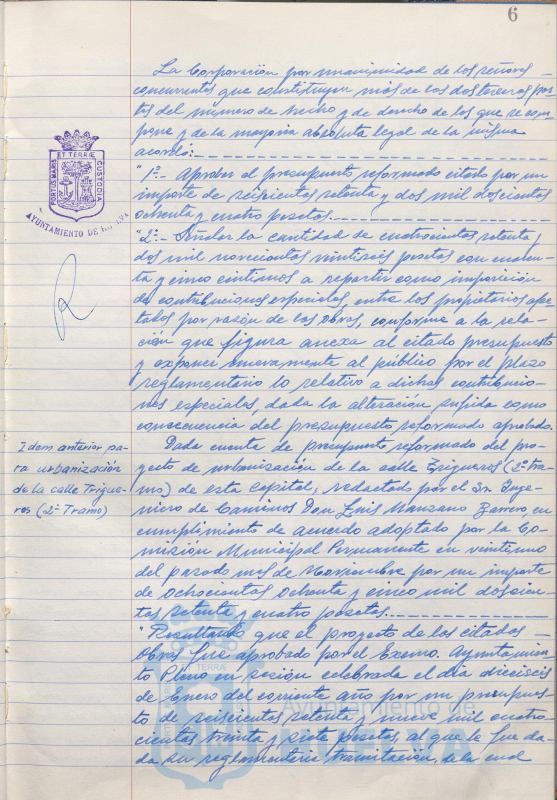 6
La Corporación por unanimidad de los señores
concurrentes que constituyen más de los dos terceras par-
tes del número de hecho y de derecho de los que se com-
pone y de la mayoria absoluta legal de la misma
acordó:
"1º.- Aprobar el presupuesto reformado citado por un
importe de seiscientas setenta y dos mil doscientas
ochenta y cuatro pesetas.
"2º.- Señalar la cantidad de cuatrocientas setenta y
dos mil novecientas veintiseis pesetas con cuaren-
ta y cinco centimos a repartir como imposición
de contribuciones especiales, entre los propietarios afec-
tados por razón de las obras, conforme a la rela-
ción que figura anexa al citado presupuesto
y exponer nuevamente al público por el plazo
reglamentario lo relativo a dichas contribucio-
nes especiales, dada la alteración sufrida como
consecuencia del presupuesto reformado aprobado.
PORTUS MARIS ET TERRÆ CUSTODIA
AYUNTAMIENTO DE HUELVA
Idem anterior pa-
ra urbanización
de la calle Trigue-
ros (2º Tramo)
Dada cuenta de presupuesto reformado del pro-
yecto de urbanización de la calle Trigueros (2º tra-
mo) de esta Capital, redactado por el Sr. Inge-
niero de Caminos Don Luis Manzano Barrero, en
cumplimiento de acuerdo adoptado por la Co-
misión Municipal Permanente en veintiuno
del pasado mes de Noviembre por un importe
de ochocientas ochenta y cinco mil doscien-
tas setenta y cuatro pesetas.
"Resultando que el proyecto de las citadas
obras fue aprobado por el Excmo. Ayuntamien-
to Pleno en sesión celebrada el dia dieciseis
de Enero del corriente año por un presupues-
to de seiscientas setenta y nueve mil cuatro-
cientas treinta y siete pesetas, al que le fue da-
da su reglamentaria tramitación, de la cual
Ayuntamiento de
HUELVA